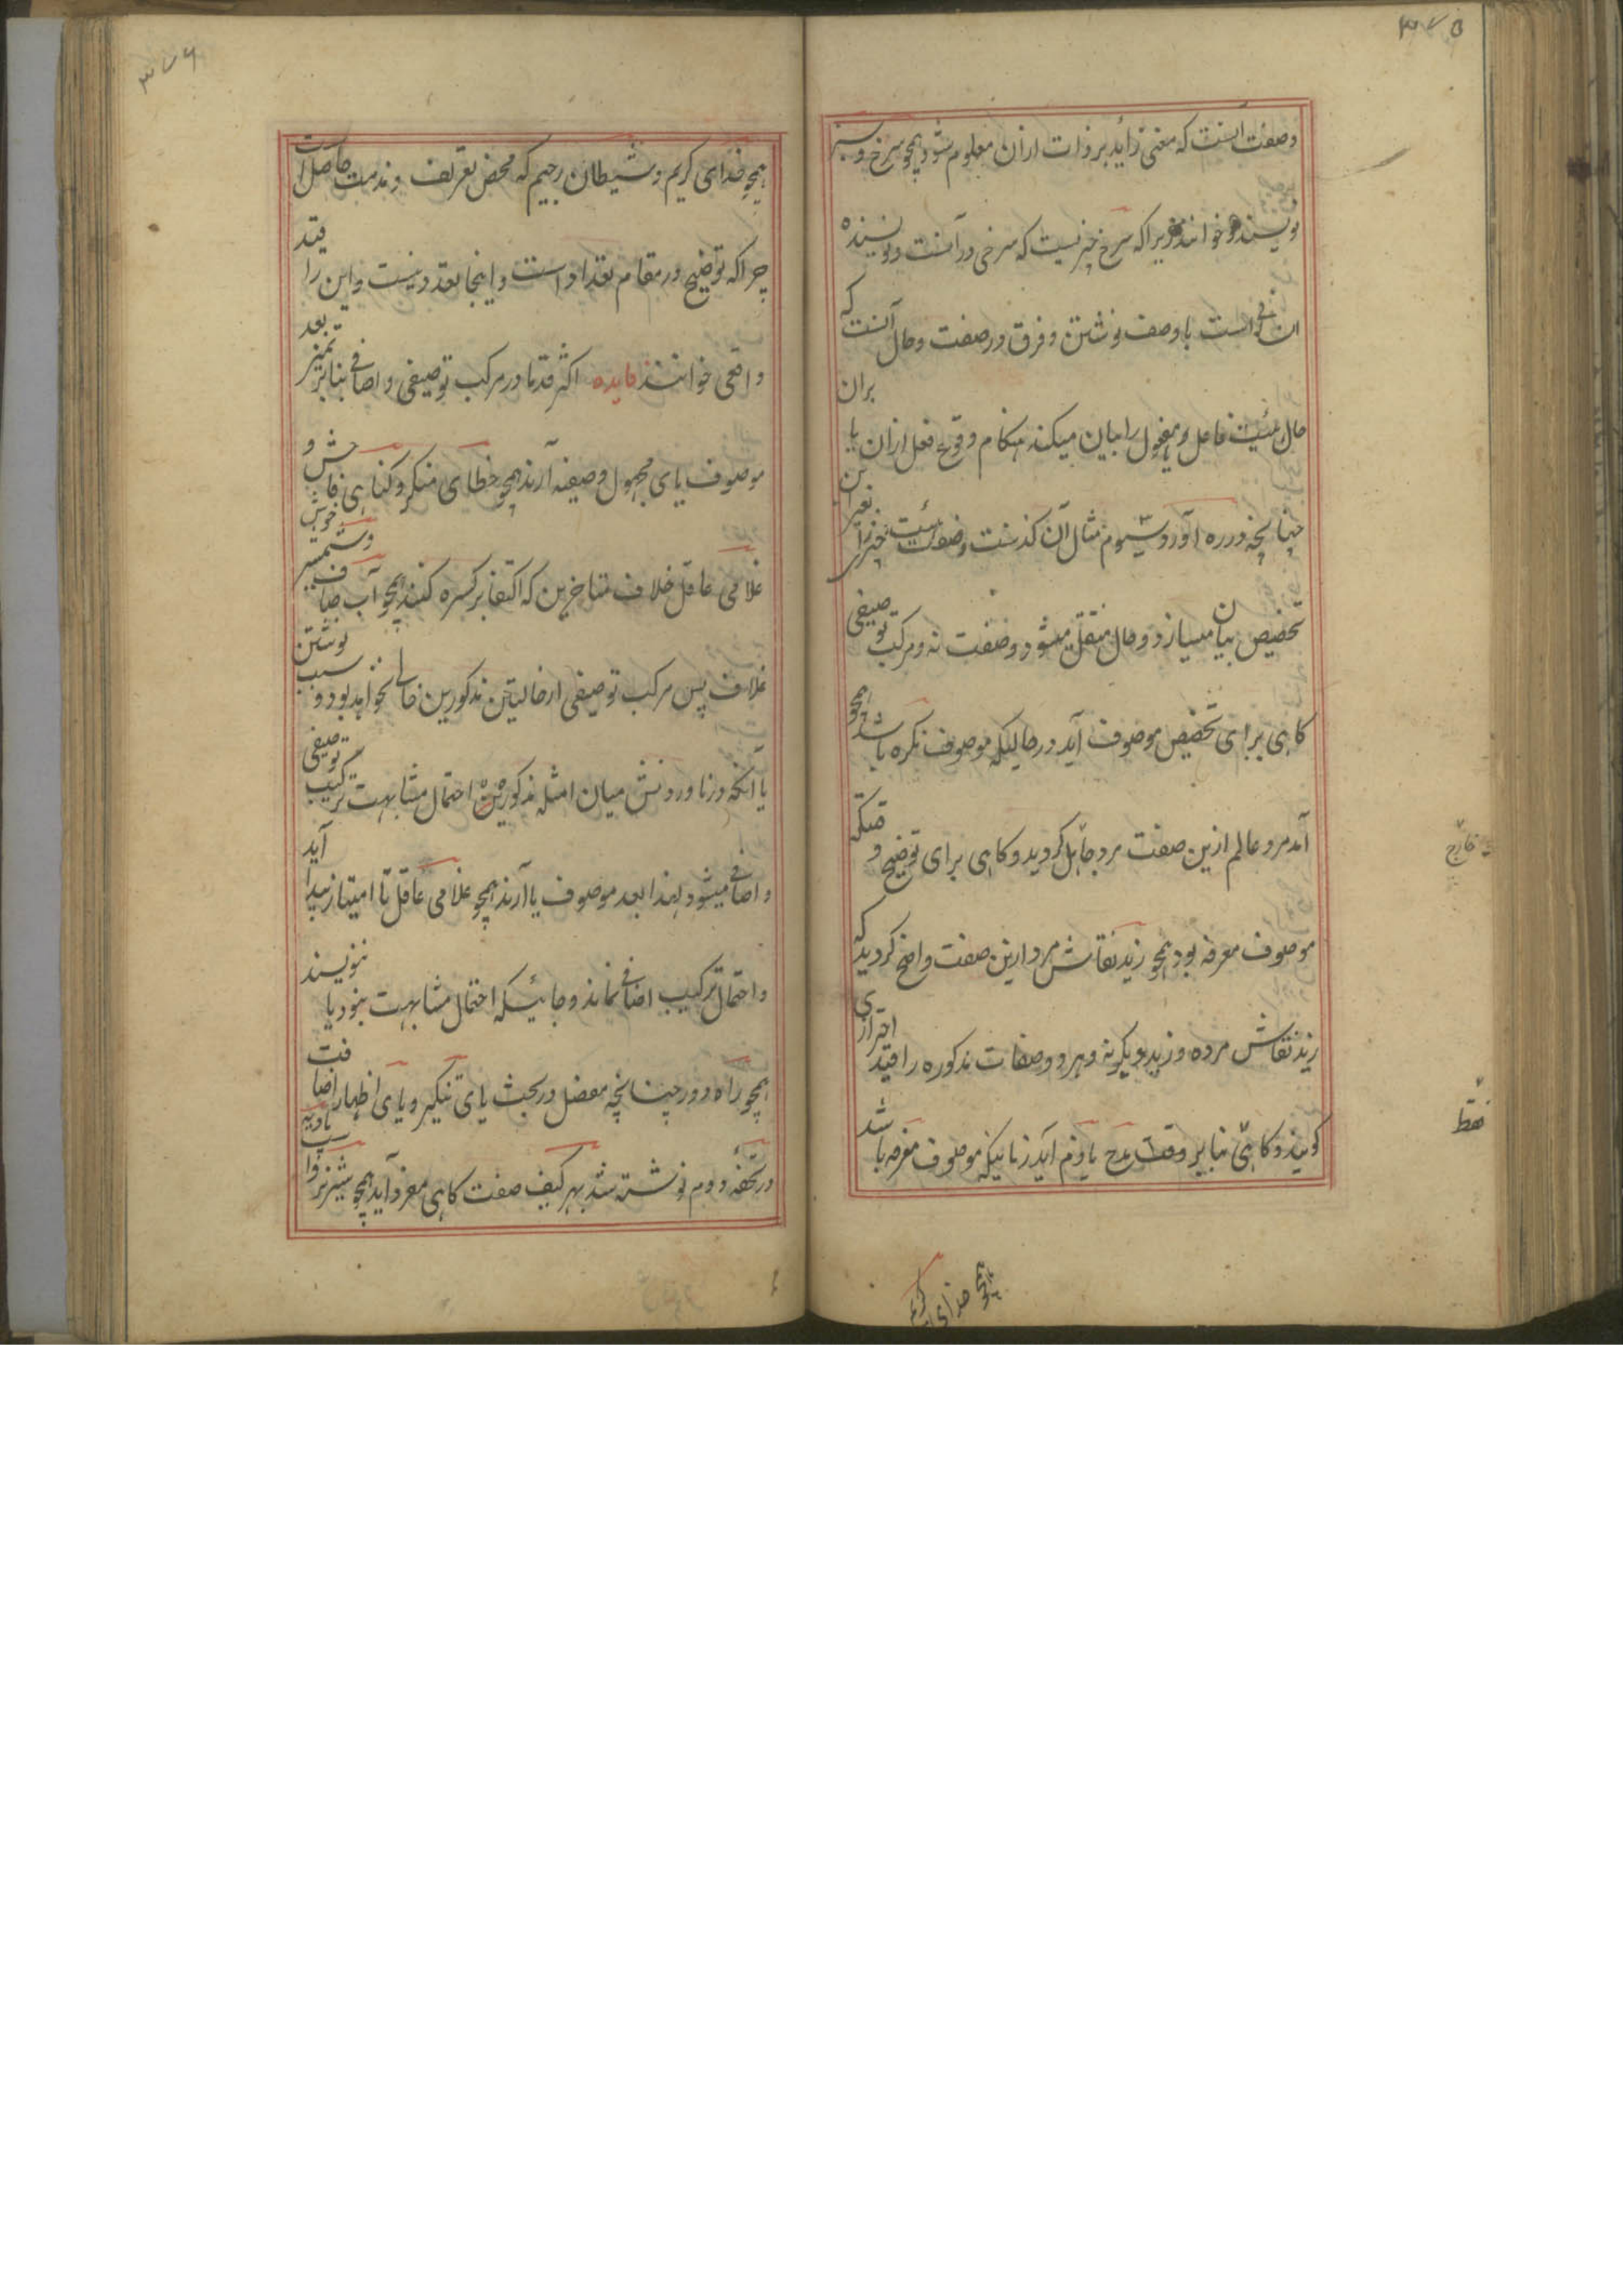 ۳۷۵
وصفت آنست که معنی زاید بر ذات ازان معلوم شود همچو سرخ و سبز
نویسنده و خوانند زیراکه سرخ چیزیست که سرخی در آنست و نویسنده
انسانی است با وصف نوشتن و فرق در صفت و حال آنست که
حال هیئت فاعل و مفعول را بیان میکند هنگام وقوع فعل ازان یا بران
چنانچه در ره آورد سیوم مثال آن گذشت و صفت هیئت چیز را بغیر این
تخصیص بیان میسازد و حال منتقل میشود و صفت نه و مرکب توصیفی
گاهی برای تخصیص موصوف آید در حالیکه موصوف نکره باشد همچو
آمد مرد عالم ازین صفت مرد جاهل گردید و گاهی برای توضیح وقتیکه
موصوف معرفه بود همچو زید نقاش مرد ازین صفت واضح گردید که
زید نقاش مرده و زید دیگر نه و هر دو صفات مذکوره را قید احترازی
گویند و گاهی بنا بر وقت مدح یا ذم آید زمانیکه موصوف معرفه باشد
همچو خدای کریم
خارج
فقط
۳۷۶
همچو خدای کریم و شیطان رجیم که محض تعریف و مذمت حاصل است
چراکه توضیح در مقام تعداد است و اینجا تعدد نیست و این را قید
واقعی خوانند فایده اکثر قدما در مرکب توصیفی و اضافی بنابر تمیز بعد
موصوف یای مجهول وصیفه آرند همچو خطای منکر و گناهی فاحش و
غلامی عاقل خلاف متاخرین که اکتفا بر کسره کنند همچو آب صاف و شمشیر خوش
غلاف پس مرکب توصیفی از حالیتین مذکورین خالی نخواهد بود و سبب نوشتن
یا آنکه در نا و روش میان امثله مذکوره احتمال مشابهت ترکیب توصیفی
و اضافی میشود لهذا بعد موصوف یا آرند همچو غلامی عاقل تا امتیاز پیدا آید
و احتمال ترکیب اضافی نماند و جائیکه احتمال مشابهت نبود یا ننویسند
همچو راه دور چنانچه مفصل در بحث یای تنکیر و یای اظهار اضافت
در تحفهٔ دوم نوشته شد بهر کیف صفت گاهی مفرد آید همچو شیر نر و اسپ تازی